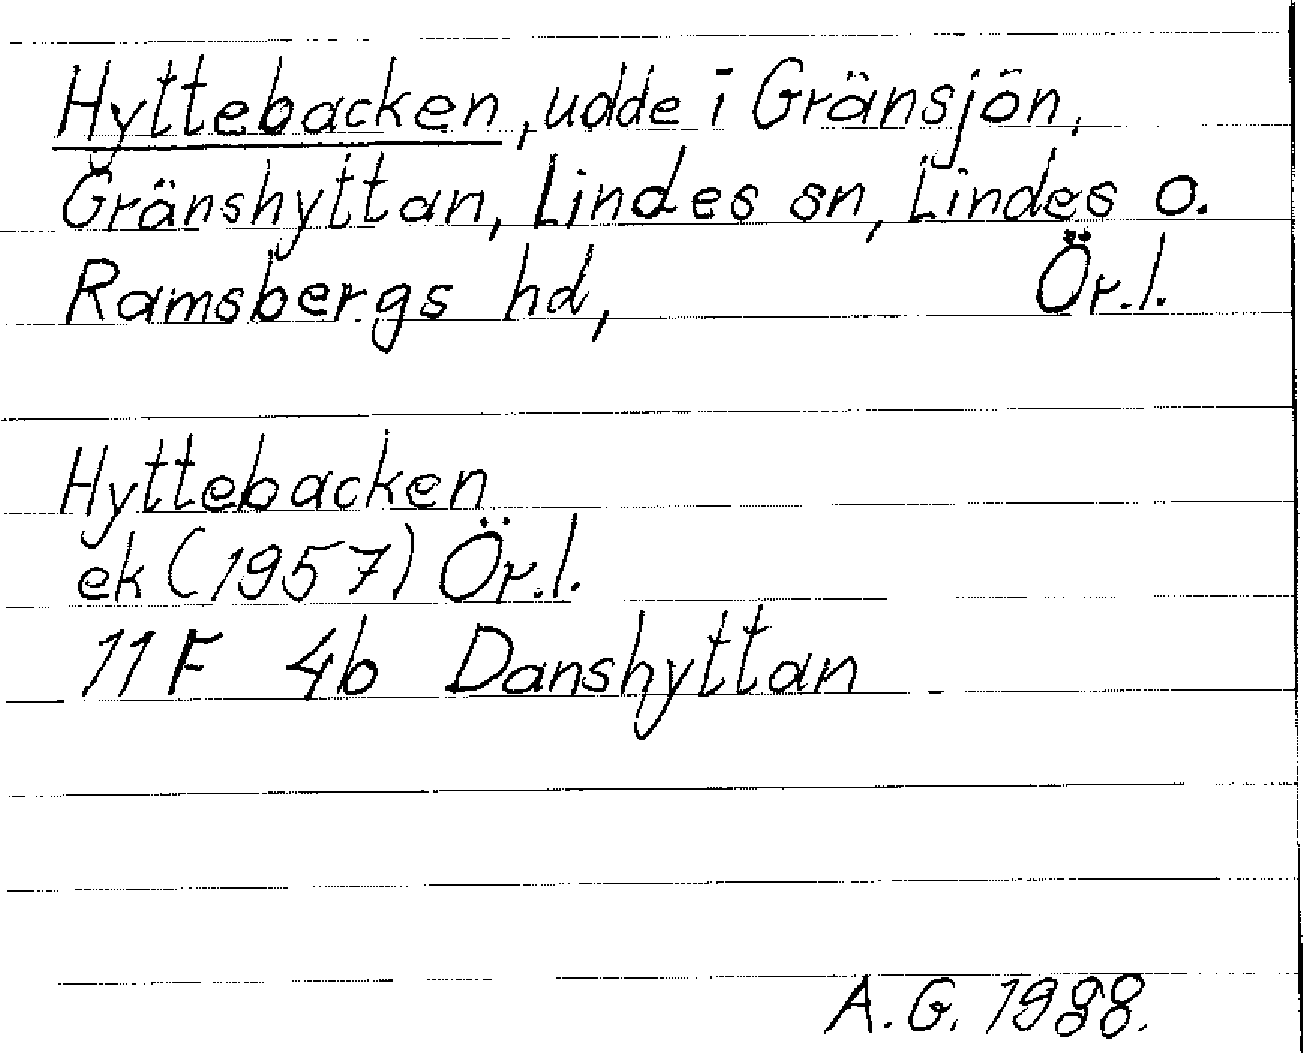 Hyttebacken, udde i Gränsjön,
Gränshyttan, Lindes sn, Lindes o.
Ramsbergs hd, Ör.l.
Hyttebacken
ek (1957) Ör.l.
11F 4b Danshyttan
A.G. 1988.